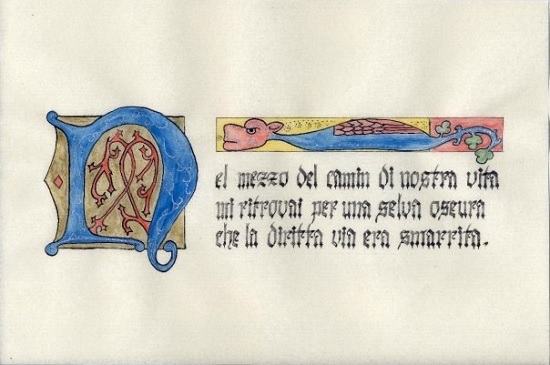 Nel mezzo del camin di nostra vita
mi ritrovai per una selva oscura
che la diritta via era smarrita.